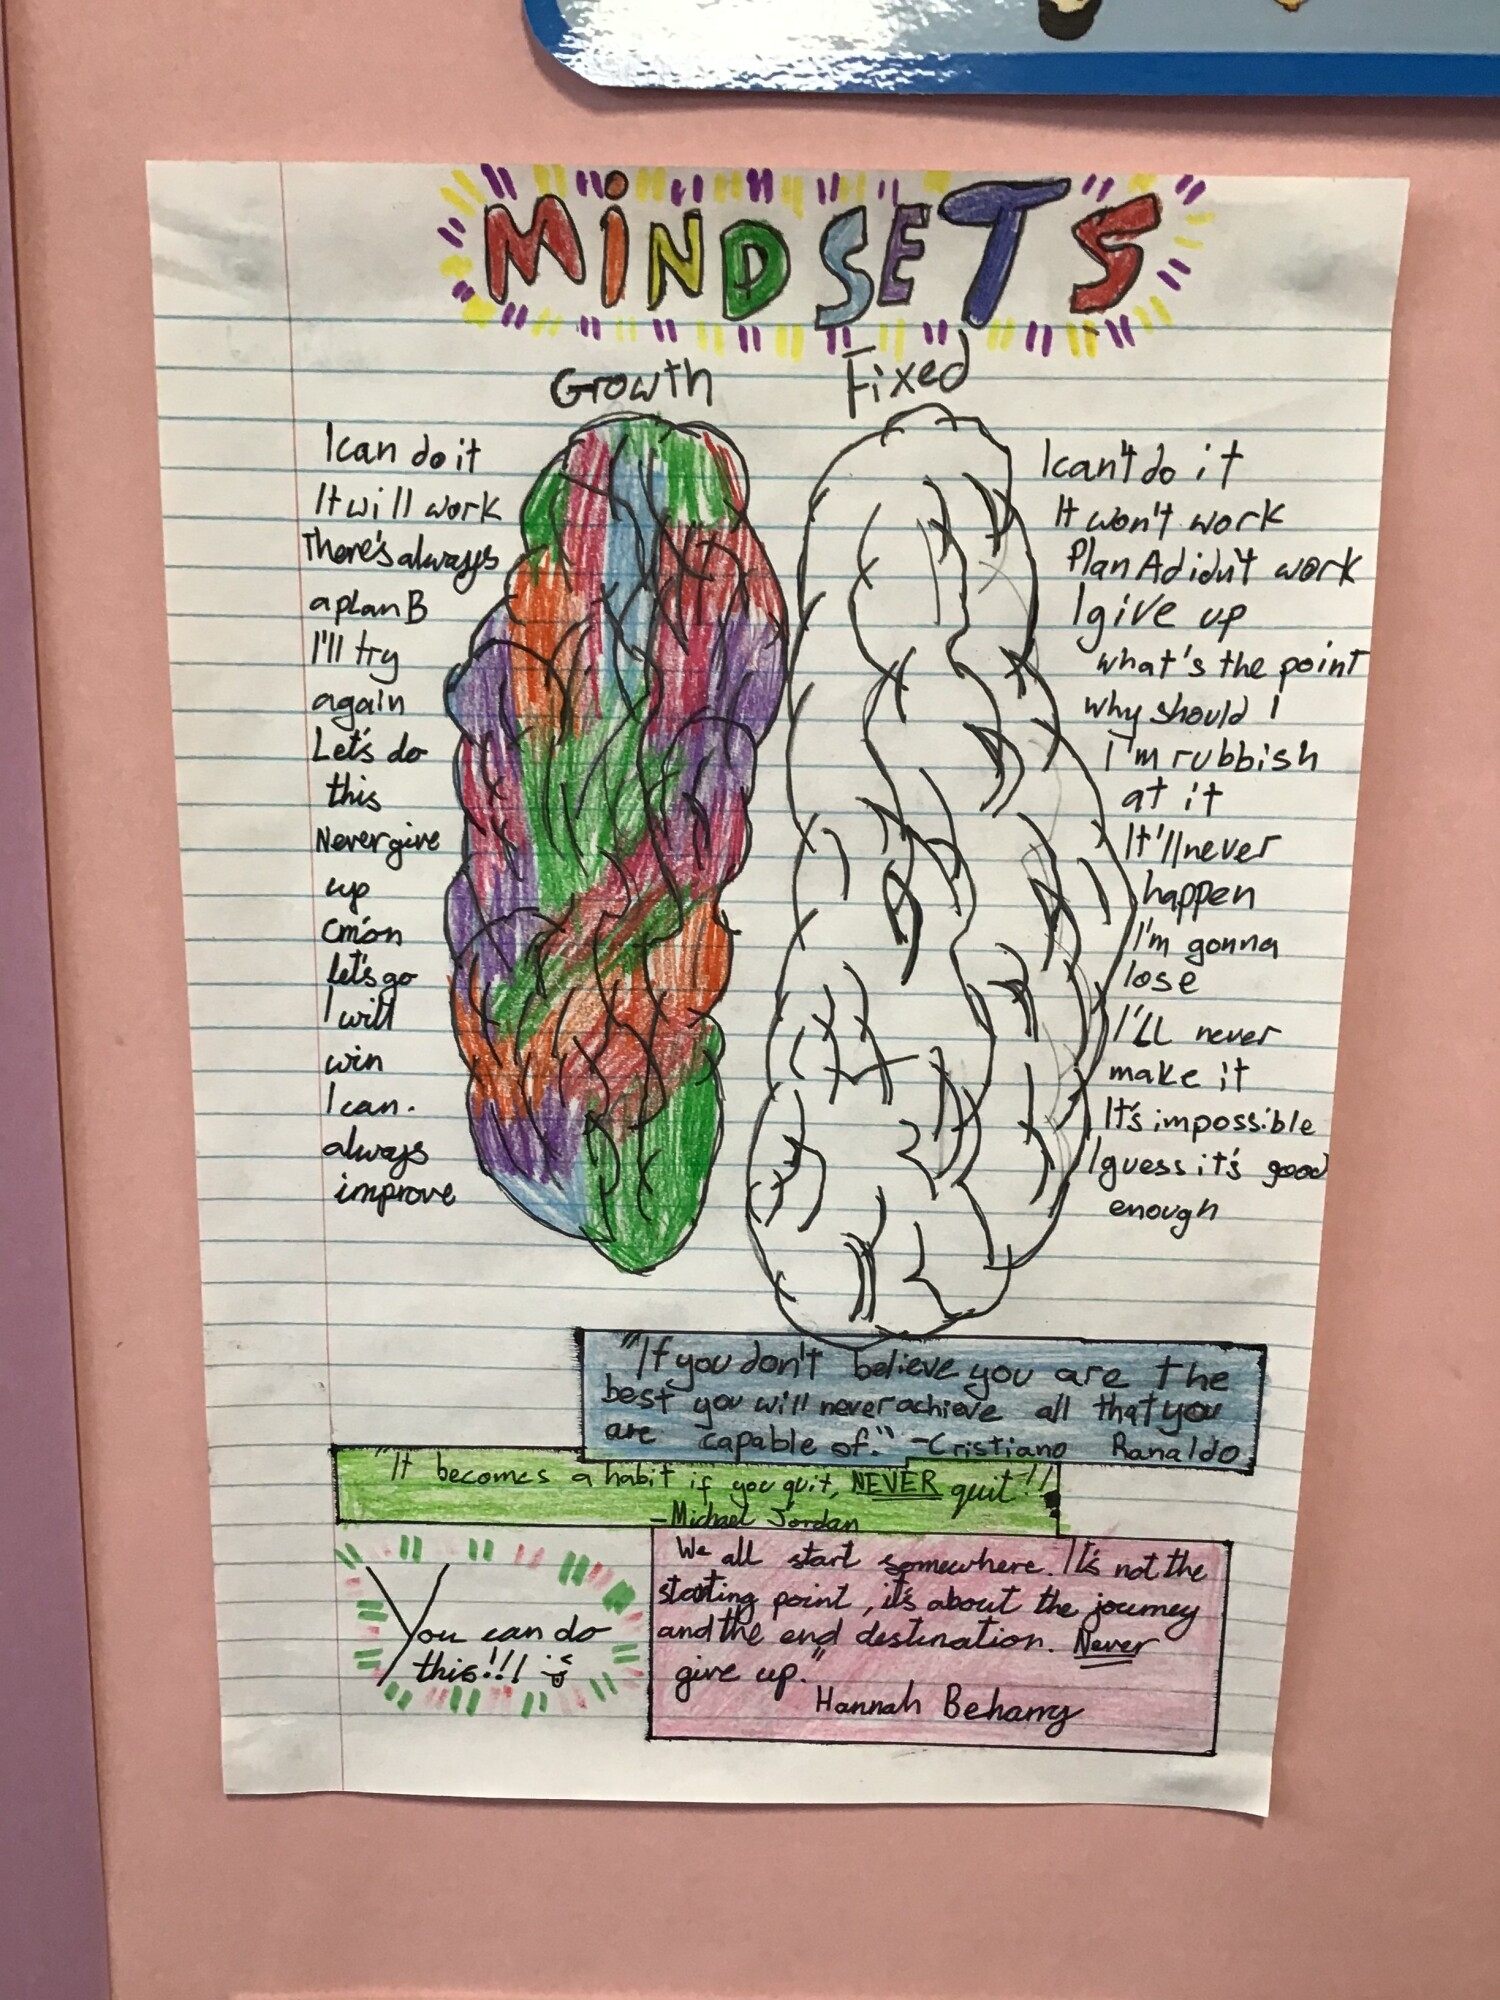 MiNDSETS
Growth
Fixed
I can do it
It will work
There's always
a plan B
I'll try
again
Let's do
this
Never give
up
C'mon
let's go
I will
win
I can.
always
improve
I can't do it
It won't work
Plan A didn't work
I give up
what's the point
why should I
I'm rubbish
at it
It'll never
happen
I'm gonna
lose
I'LL never
make it
It's impossible
I guess it's good
enough
"If you don't believe you are the
best you will never achieve all that you
are capable of." -Cristiano Ranaldo
"It becomes a habit if you quit, NEVER quit!!
-Michael Jordan
We all start somewhere. It's not the
starting point, it's about the journey
and the end destination. Never
give up."
Hannah Beharry
You can do
this!!!